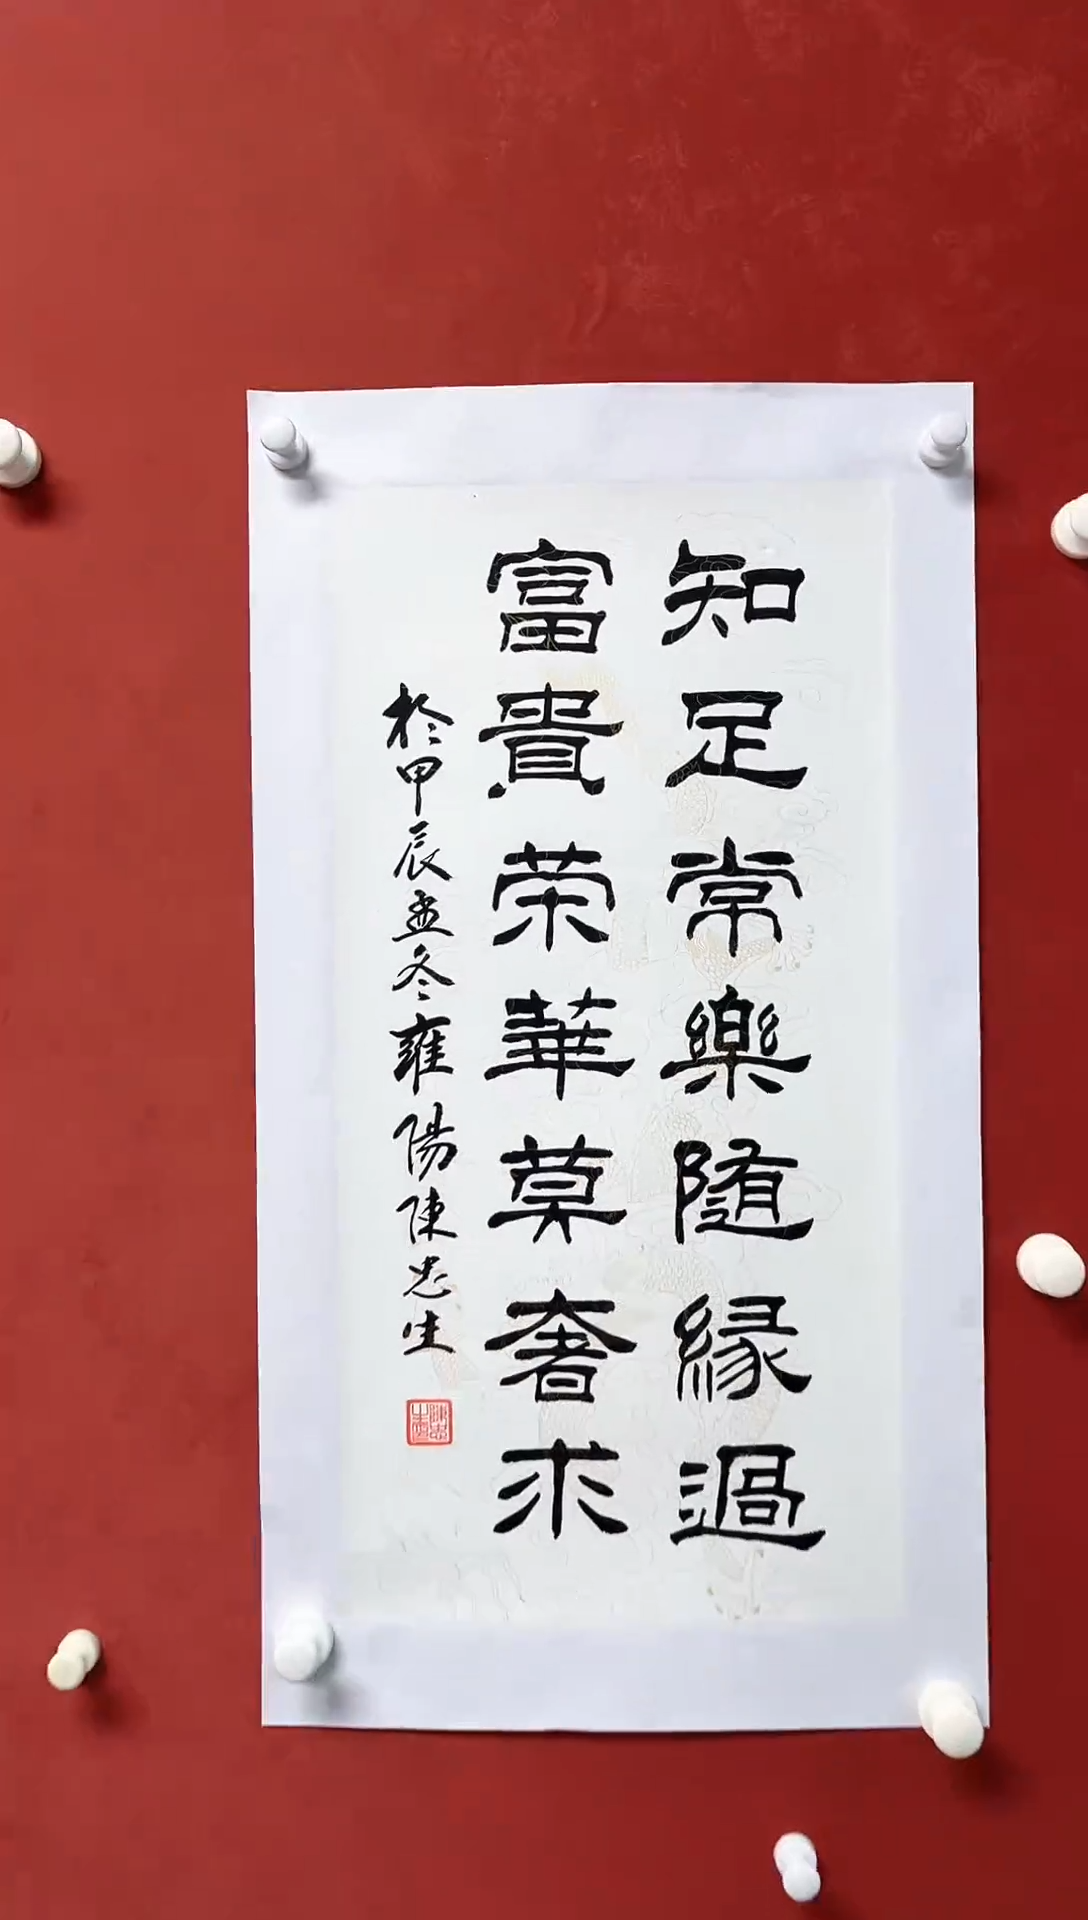 知足常樂隨緣過
富貴荣華莫奢求
於甲辰孟冬雍陽陳忠生